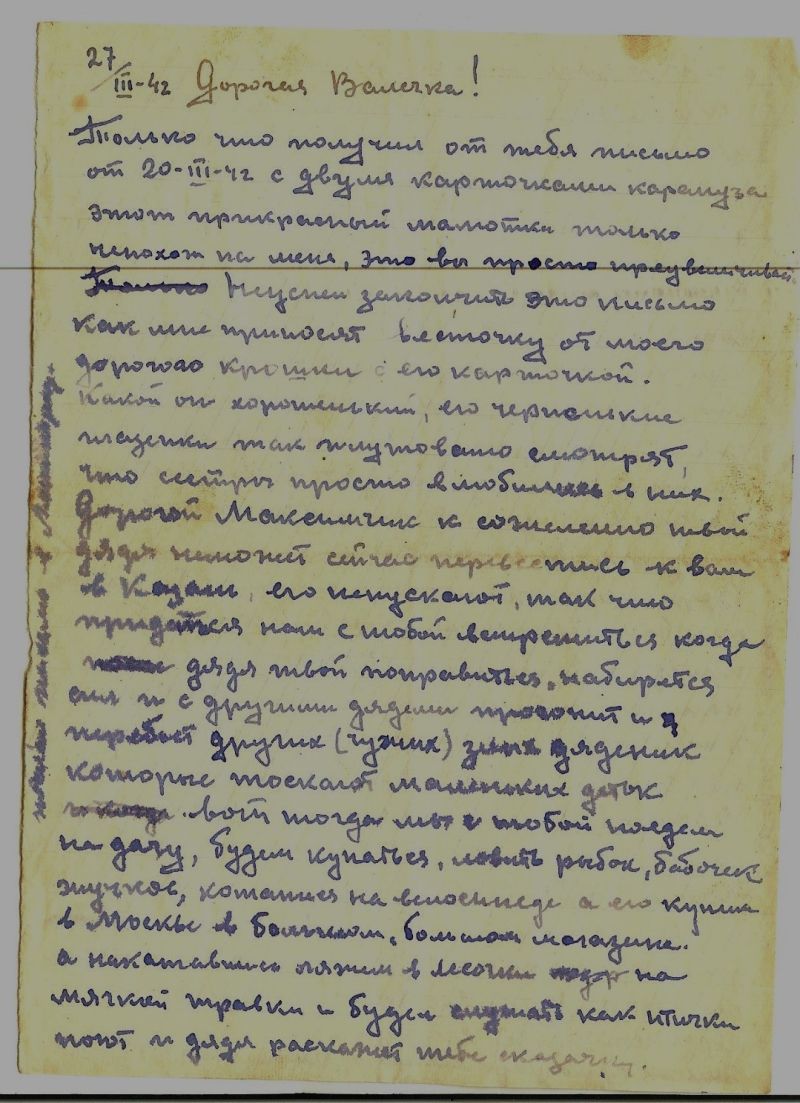 27/III-42 Дорогая Валечка!
Только что получил от тебя письмо
от 20-III-42 с двумя карточками карапуза
этот прикрасный мамотка только
непохож на меня, это вы просто преувеличивает.
Только Неуспел закончить это письмо
как мне приносят весточку от моего
дорогого крошки с его карточкой.
Какой он хорошенький, его чернинькие
глазенки так плутовато смотрят,
что сестры просто влюбились в них.
Дорогой Максимчик к сожелению твой
дядя неможет сейчас перевестись к вам
в Казань, его непускают, так что
придётся нам с тобой встретиться когда
дядя твой поправиться, набирется
сил и с другими дядеми прогонит и
перебьёт других (чужих) злых дяденик
которые тоскают маленьких деток
и когда. вот тогда мы с тобой поедем
на дачу, будем купаться, ловить рыбок, бабочек
жучков, кататься на велосипеде а его купим
в Москве в большом, большом магазине.
а накатавшись ляжем в лесочки на
мягкой травки и будем слушать как птички
поют и дядя раскажет тебе сказачку.
письмо в